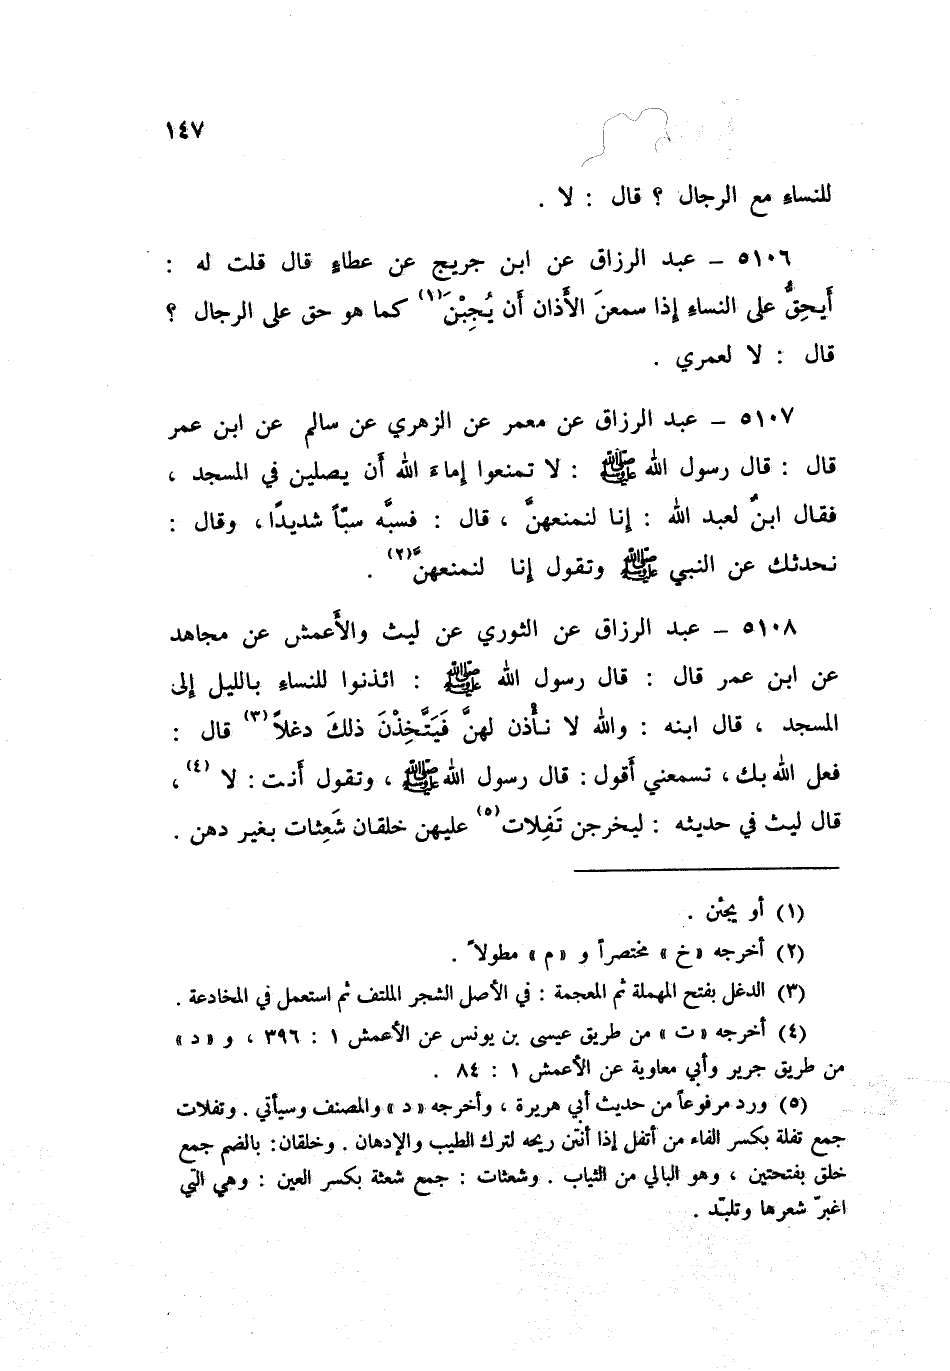 ١٤٧
للنساءِ مع الرجال ؟ قال : لا .
٥١٠٦ – عبد الرزاق عن ابن جريج عن عطاءٍ قال قلت له :
أَيحِقُّ على النساءِ إذا سمعنَ الأَذان أَن يُجِبْنَ(١) كما هو حق على الرجال ؟
قال : لا لعمري .
٥١٠٧ – عبد الرزاق عن معمر عن الزهري عن سالم عن ابن عمر
قال : قال رسول الله ﷺ : لا تمنعوا إماءَ الله أَن يصلين في المسجد ،
فقال ابنٌ لعبد الله : إنا لنمنعهنَّ ، قال : فسبَّه سبّاً شديدًا ، وقال :
نحدثك عن النبي ﷺ وتقول إنا لنمنعهنَّ(٢) .
٥١٠٨ – عبد الرزاق عن الثوري عن ليث والأَعمش عن مجاهد
عن ابن عمر قال : قال رسول الله ﷺ : ائذنوا للنساءِ بالليل إلى
المسجد ، قال ابنه : والله لا نأْذن لهنَّ فَيَتَّخِذْنَ ذلكَ دغلاً(٣) قال :
فعل الله بك ، تسمعني أَقول : قال رسول الله ﷺ ، وتقول أَنت : لا (٤) ،
قال ليث في حديثه : ليخرجن تَفِلات(٥) عليهن خلقان شَعِثات بغير دهن .
(١) أو يجئن .
(٢) أخرجه «خ» مختصراً و «م» مطولاً .
(٣) الدغل بفتح المهملة ثم المعجمة : في الأصل الشجر الملتف ثم استعمل في المخادعة .
(٤) أخرجه «ت» من طريق عيسى بن يونس عن الأعمش ١ : ٣٩٦ ، و «د»
من طريق جرير وأبي معاوية عن الأعمش ١ : ٨٤ .
(٥) ورد مرفوعاً من حديث أبي هريرة ، وأخرجه «د» والمصنف وسيأتي . وتفلات
جمع تفلة بكسر الفاء من أتفل إذا أنتن ريحه لترك الطيب والإدهان . وخلقان: بالضم جمع
خلق بفتحتين ، وهو البالي من الثياب . وشعثات : جمع شعثة بكسر العين : وهي التي
اغبرّ شعرها وتلبّد .